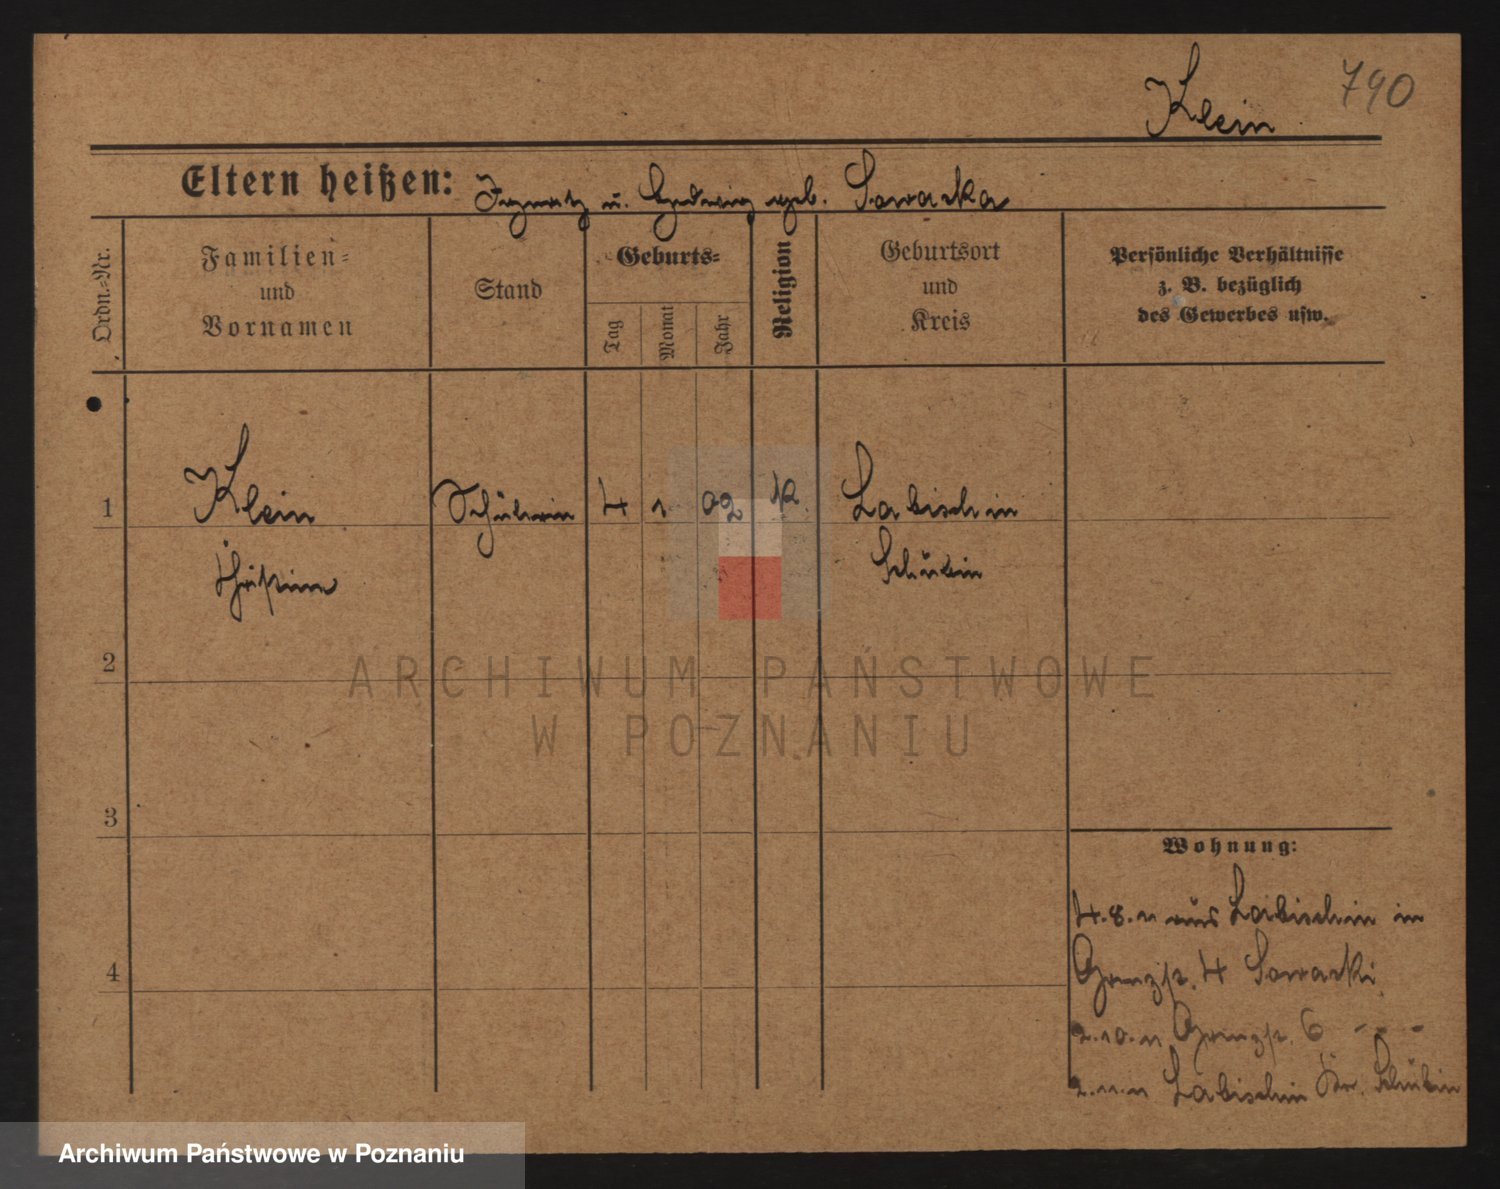 790
Klein
Eltern heißen: Ignatz u. Hedwig geb. Sowacka
Ordn.=Nr.
Familien=
und
Vornamen
Stand
Geburts=
Tag
Monat
Jahr
Religion
Geburtsort
und
Kreis
Persönliche Verhältnisse
z. B. bezüglich
des Gewerbes usw.
1
Klein Schülerin 4 1 02 K. Labischin
Schubin
2
ARCHIWUM PAŃSTWOWE
W POZNANIU
3
Wohnung:
4.8.11 aus Labischin in
4
Grenzstr. 4 Sowacki
2.10.11 Grenzstr. 6 - - -
2.11.11 Labischin Kr. Schubin
Archiwum Państwowe w Poznaniu